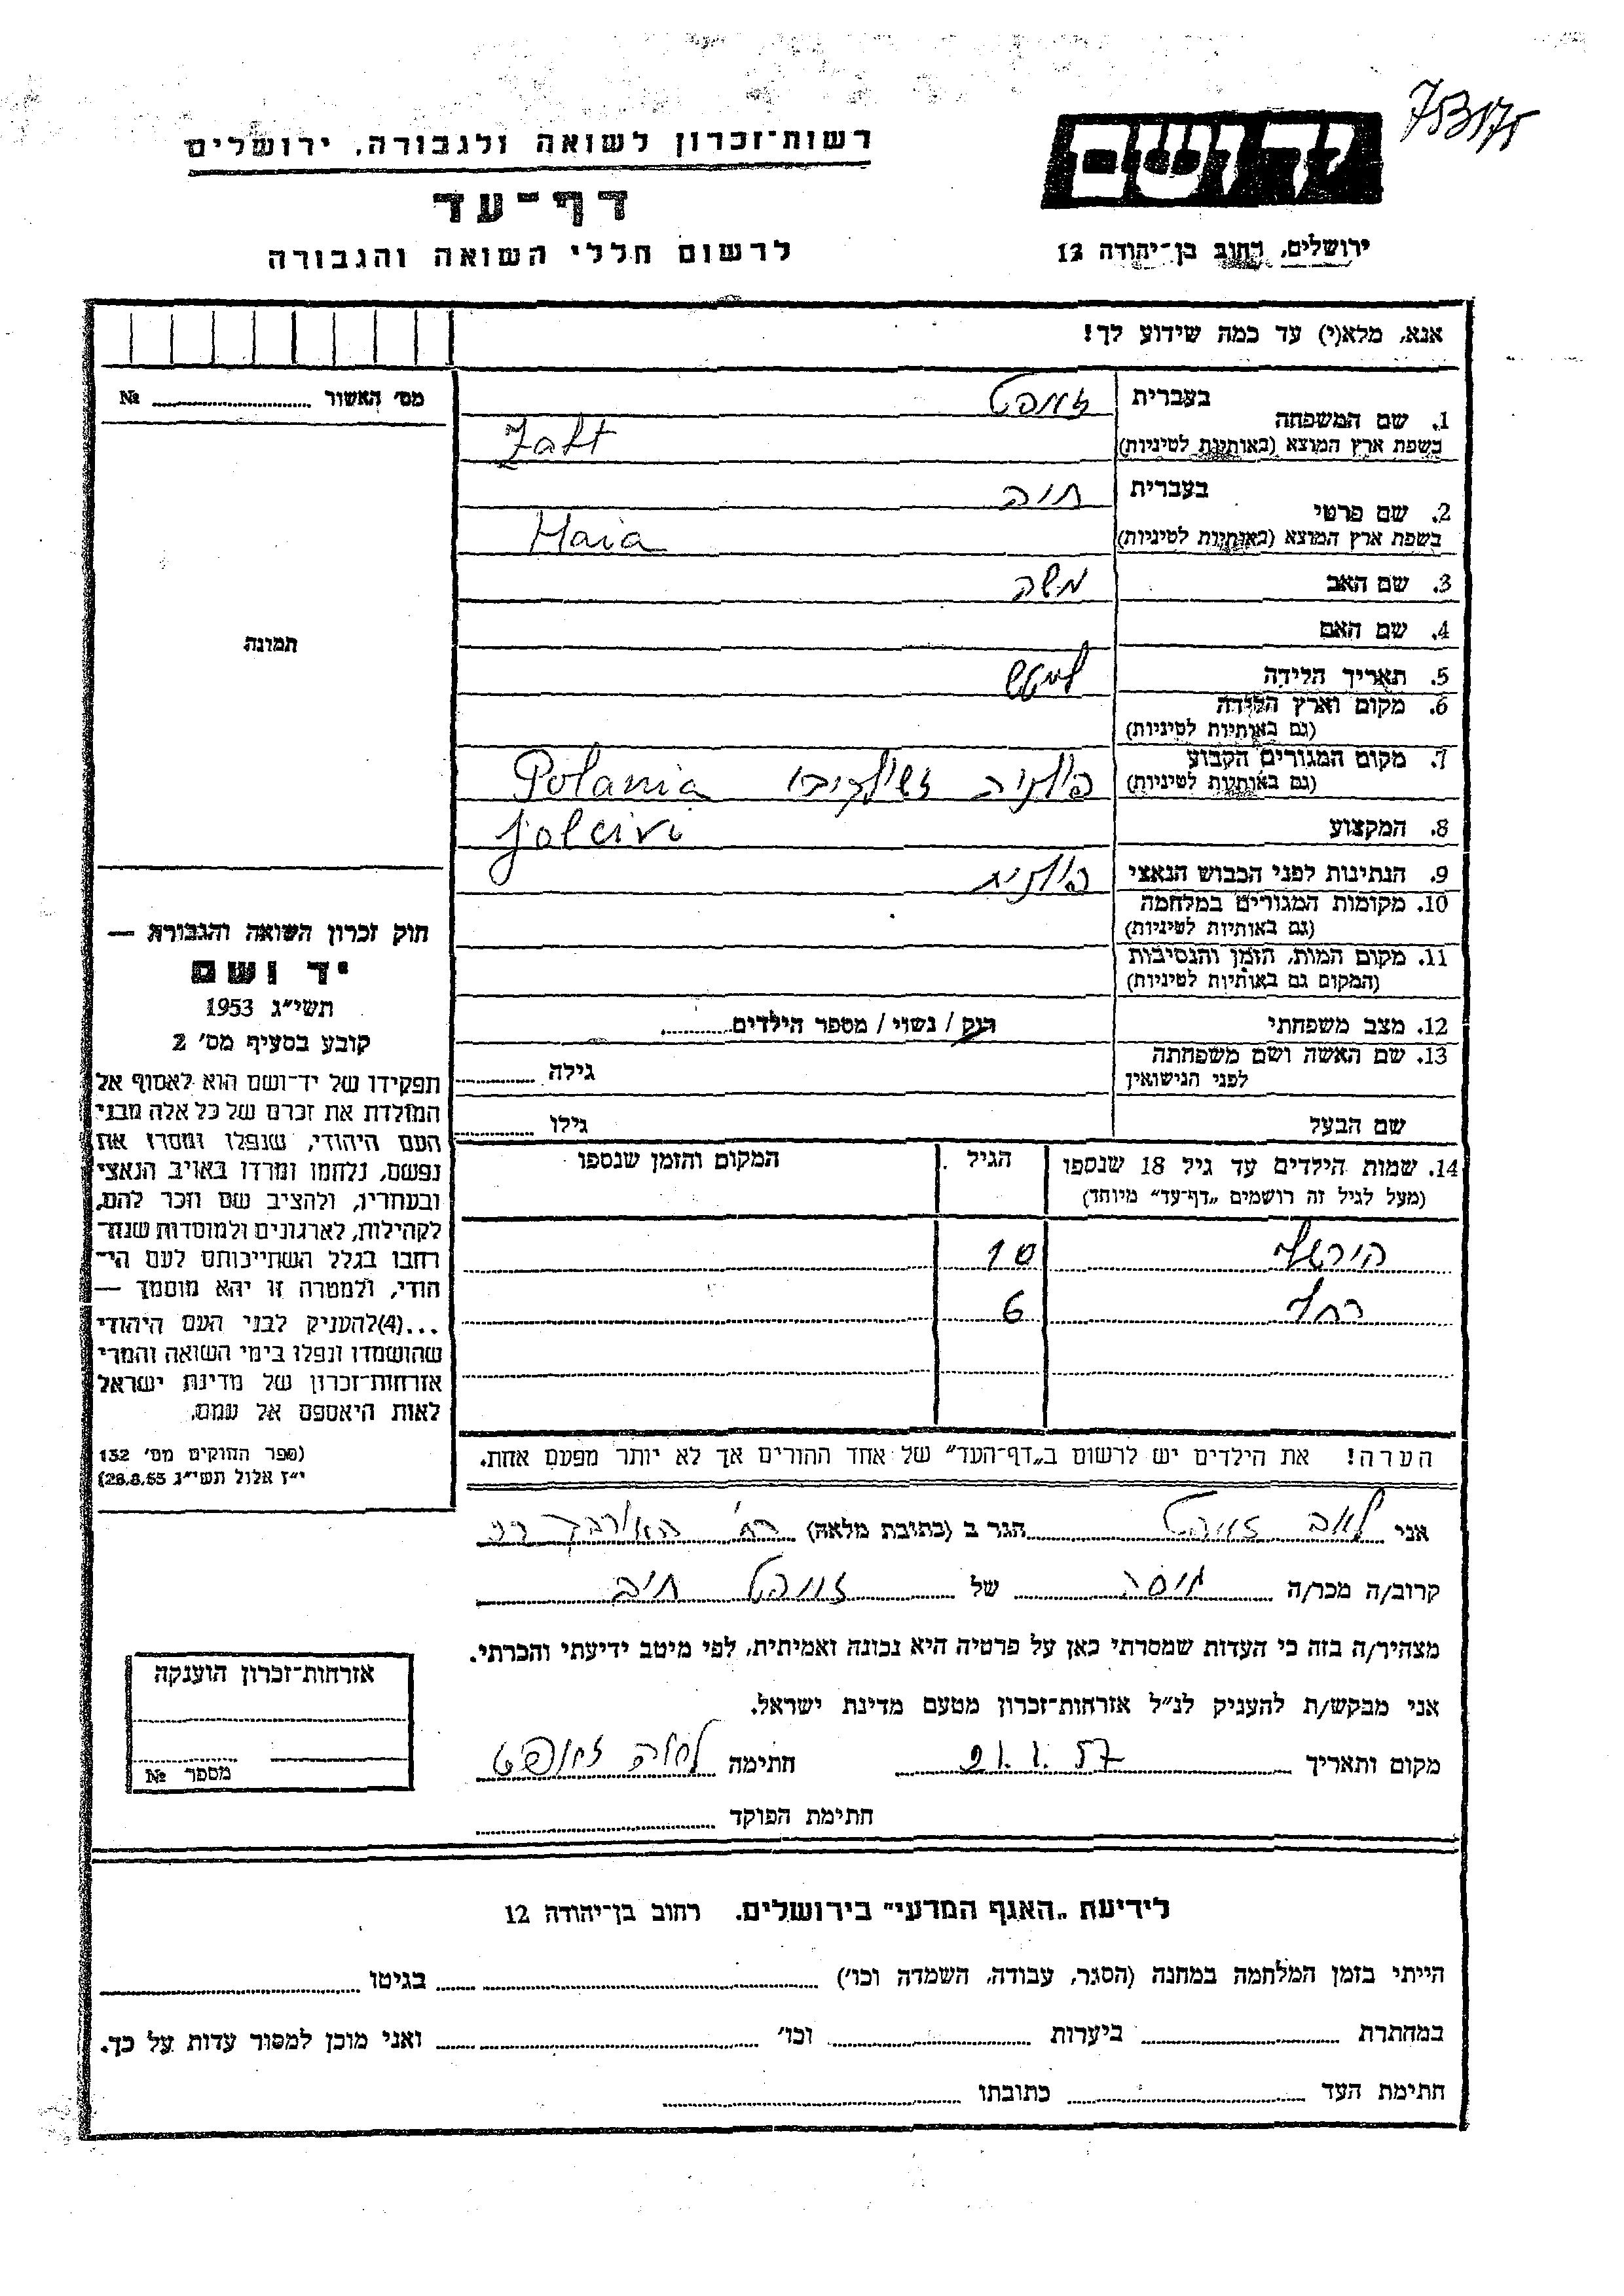 753175
רשות־זכרון לשואה ולגבורה, ירושלים
יד ושם
דף־עד
לרשום חללי השואה והגבורה
ירושלים, רחוב בן־יהודה 12
אנא, מלא(י) עד כמה שידוע לך!
מס' האשור № 
1. שם המשפחה
בעברית
בשפת ארץ המוצא (באותיות לטיניות)
Zaft
2. שם פרטי
בעברית חיה
בשפת ארץ המוצא (באותיות לטיניות) Haia
3. שם האב משה
4. שם האם
תמונה
5. תאריך הלידה
6. מקום וארץ הלידה
(גם באותיות לטיניות)
7. מקום המגורים הקבוע
(גם באותיות לטיניות) פולניה Polania
8. המקצוע
9. הנתינות לפני הכבוש הנאצי פולנית
10. מקומות המגורים במלחמה
(גם באותיות לטיניות)
11. מקום המות, הזמן והנסיבות
(המקום גם באותיות לטיניות)
12. מצב משפחתי רוק / נשוי / מספר הילדים
13. שם האשה ושם משפחתה
לפני הנישואין גילה
שם הבעל גילו
14. שמות הילדים עד גיל 18 שנספו הגיל המקום והזמן שנספו
(מעל לגיל זה רושמים „דף־עד" מיוחד)
הירשל 10
רחל 6
הערה! את הילדים יש לרשום ב„דף־העד" של אחד ההורים אך לא יותר מפעם אחת.
חוק זכרון השואה והגבורה —
יד ושם
תשי״ג 1953
קובע בסעיף מס' 2
תפקידו של יד־ושם הוא לאסוף אל
המולדת את זכרם של כל אלה מבני
העם היהודי, שנפלו ומסרו את
נפשם, נלחמו ומרדו באויב הנאצי
ובעוזריו, ולהציב שם וזכר להם,
לקהילות, לארגונים ולמוסדות שנח־
רבו בגלל השתייכותם לעם הי־
הודי, ולמטרה זו יהא מוסמך —
...(4)להעניק לבני העם היהודי
שהושמדו ונפלו בימי השואה והמרי
אזרחות־זכרון של מדינת ישראל
לאות היאספם אל עמם.
(ספר החוקים מס' 132
י״ז אלול תשי״ג 28.8.53)
אני הגר ב (כתובת מלאה) רח'
קרוב/ה מכר/ה גיסה של חיה
מצהיר/ה בזה כי העדות שמסרתי כאן על פרטיה היא נכונה ואמיתית, לפי מיטב ידיעתי והכרתי.
אני מבקש/ת להעניק לנ״ל אזרחות־זכרון מטעם מדינת ישראל.
מקום ותאריך 21.1.57 חתימה
חתימת הפוקד
אזרחות־זכרון הוענקה
מספר №
לידיעת „האגף המדעי" בירושלים. רחוב בן־יהודה 12
הייתי בזמן המלחמה במחנה (הסגר, עבודה, השמדה וכו') בגיטו
במחתרת ביערות וכו' ואני מוכן למסור עדות על כך.
חתימת העד כתובתו